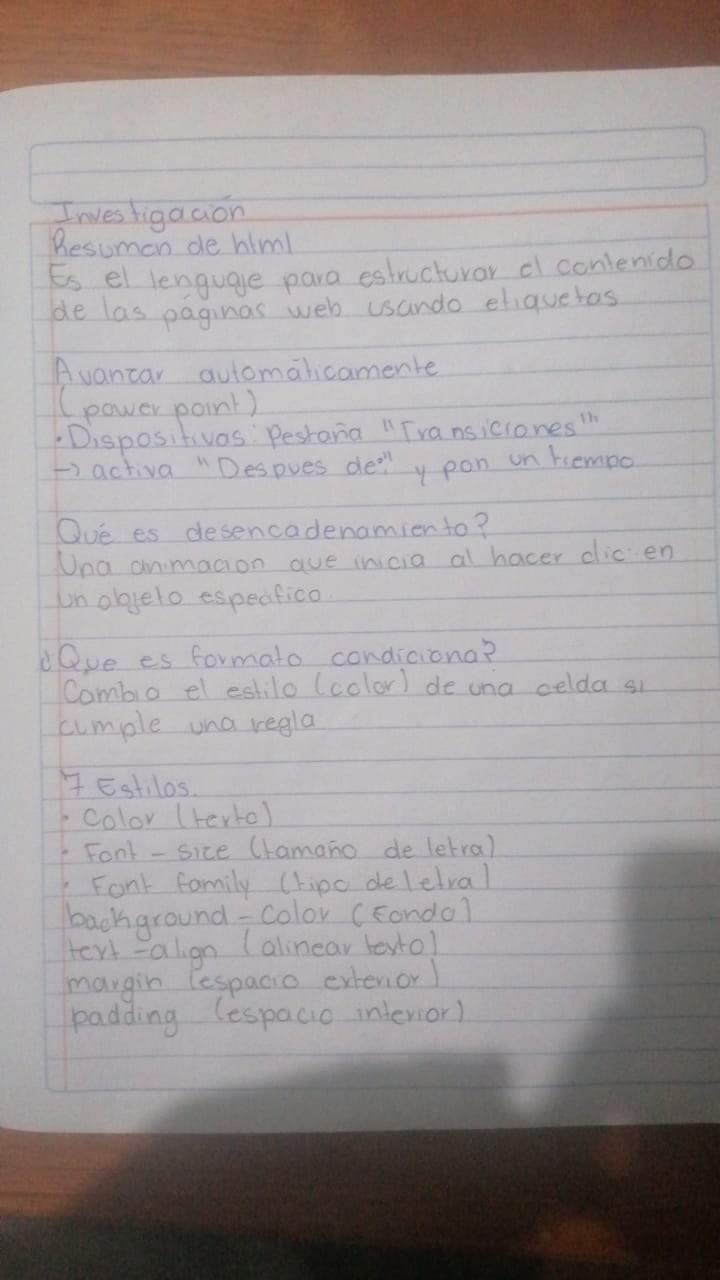 Investigación
Resumen de html
Es el lenguaje para estructurar el contenido
de las páginas web usando etiquetas
Avanzar automáticamente
(power point)
• Dispositivas: Pestaña "Transiciones"
→ activa "Despues de:" y pon un tiempo
Qué es desencadenamiento?
Una animacion que inicia al hacer clic en
un objeto especifico.
¿Que es formato condiciona?
Cambia el estilo (color) de una celda si
cumple una regla
7 Estilos.
• Color (texto)
• Font - size (tamaño de letra)
• Font family (tipo de letra)
background - color (Fondo)
text - align (alinear texto)
margin (espacio exterior)
padding (espacio interior)